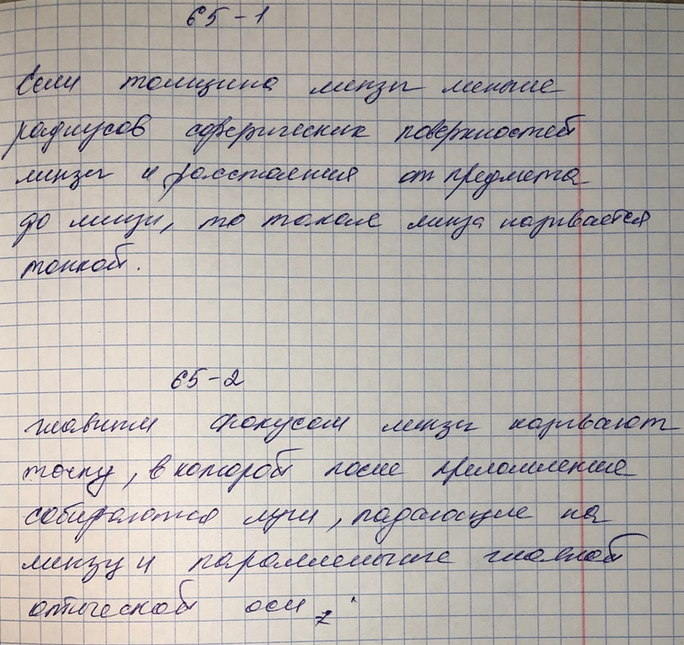 65-1
Если толщина линзы меньше
радиусов сферических поверхностей
линзы и расстояния от предмета
до линзы, то такая линза называется
тонкой.
65-2
главным фокусом линзы называют
точку, в которой после преломление
собираются лучи, падающие на
линзу и параллельные главной
оптической оси